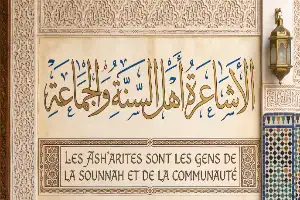 الأشاعرة أهل السنة والجماعة
LES ASH'ARITES SONT LES GENS DE
LA SOUNNAH ET DE LA COMMUNAUTÉ